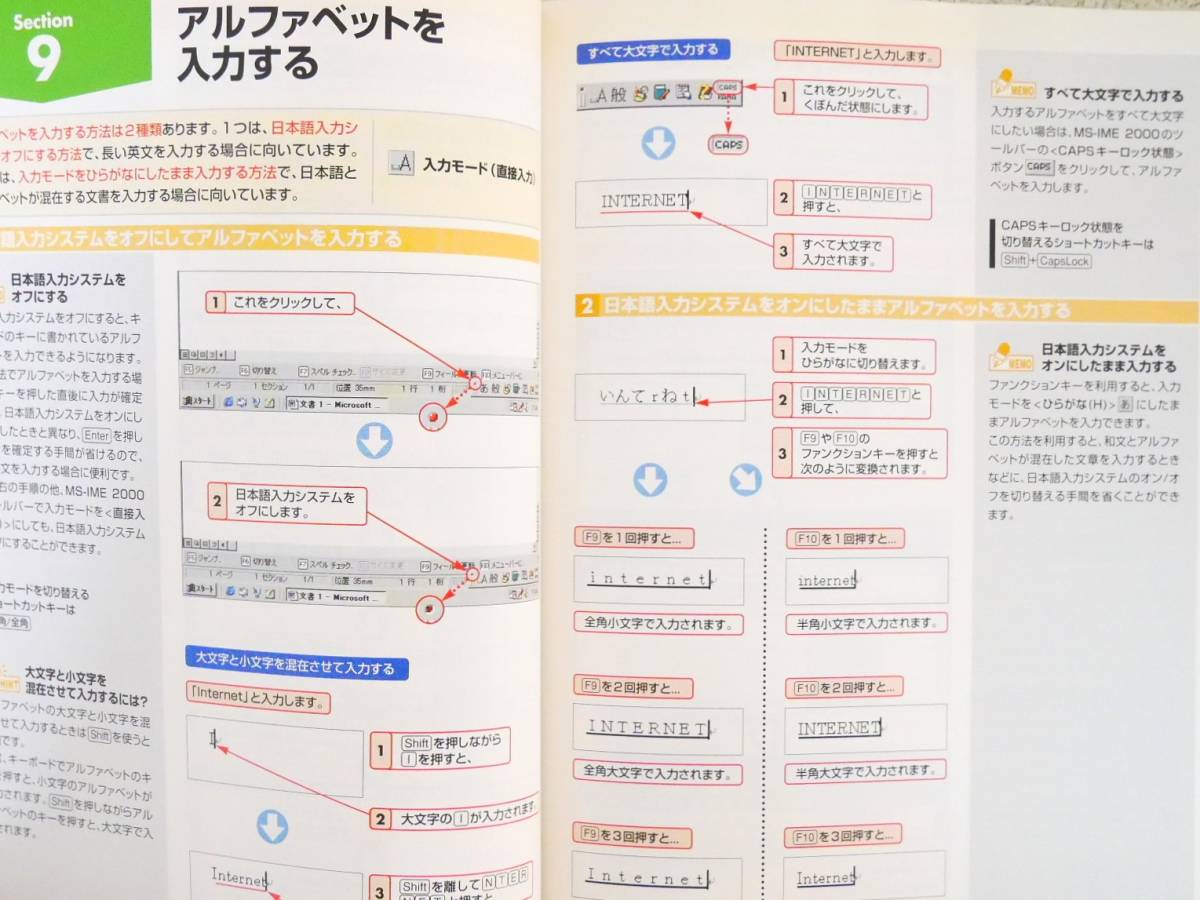 Section
9
アルファベットを
入力する
ベットを入力する方法は2種類あります。1つは、日本語入力シ
オフにする方法で、長い英文を入力する場合に向いています。
は、入力モードをひらがなにしたまま入力する方法で、日本語と
ベットが混在する文書を入力する場合に向いています。
A 入力モード(直接入力)
語入力システムをオフにしてアルファベットを入力する
日本語入力システムを
オフにする
入力システムをオフにすると、キ
ドのキーに書かれているアルフ
トを入力できるようになります。
法でアルファベットを入力する場
キーを押した直後に入力が確定
。日本語入力システムをオンにし
したときと異なり、Enterを押し
を確定する手間が省けるので、
文を入力する場合に便利です。
右の手順の他、MS-IME 2000
ールバーで入力モードを<直接入
)>にしても、日本語入力システム
フにすることができます。
力モードを切り替える
ョートカットキーは
角/全角
大文字と小文字を
混在させて入力するには?
ファベットの大文字と小文字を混
させて入力するときはShiftを使うと
です。
、キーボードでアルファベットのキ
を押すと、小文字のアルファベットが
力されます。Shiftを押しながらアル
ベットのキーを押すと、大文字で入
されます。
1 これをクリックして、
F5ジャンプ F6切り替え F7スペル チェック F9フィールド更新 F10メニューバーに
1 ページ 1 セクション 1/1 位置 35mm 1 行 1 桁
スタート 文書 1 - Microsoft ...
2 日本語入力システムを
オフにします。
F5ジャンプ F6切り替え F7スペル チェック F9フィールド更新 F10メニューバーに
1 ページ 1 セクション 1/1 位置 35mm 1 行 1 桁
スタート 文書 1 - Microsoft ...
大文字と小文字を混在させて入力する
「Internet」と入力します。
I
1 Shiftを押しながら
Iを押すと、
2 大文字のIが入力されます。
Internet
3 Shiftを離してNTER
NETと押すと
すべて大文字で入力する
「INTERNET」と入力します。
A般 CAPS
KANA
1 これをクリックして、
くぼんだ状態にします。
CAPS
INTERNET
2 INTERNETと
押すと、
3 すべて大文字で
入力されます。
MEMO すべて大文字で入力する
入力するアルファベットをすべて大文字
にしたい場合は、MS-IME 2000のツ
ールバーの<CAPSキーロック状態>
ボタンCAPSをクリックして、アルファ
ベットを入力します。
CAPSキーロック状態を
切り替えるショートカットキーは
Shift+CapsLock
2 日本語入力システムをオンにしたままアルファベットを入力する
1 入力モードを
ひらがなに切り替えます。
いんてrねt
2 INTERNETと
押して、
3 F9やF10の
ファンクションキーを押すと
次のように変換されます。
MEMO 日本語入力システムを
オンにしたまま入力する
ファンクションキーを利用すると、入力
モードを<ひらがな(H)>あにしたま
まアルファベットを入力できます。
この方法を利用すると、和文とアルファ
ベットが混在した文章を入力するとき
などに、日本語入力システムのオン/オ
フを切り替える手間を省くことができ
ます。
F9を1回押すと…
internet
全角小文字で入力されます。
F10を1回押すと…
internet
半角小文字で入力されます。
F9を2回押すと…
INTERNET
全角大文字で入力されます。
F10を2回押すと…
INTERNET
半角大文字で入力されます。
F9を3回押すと…
Internet
F10を3回押すと…
Internet